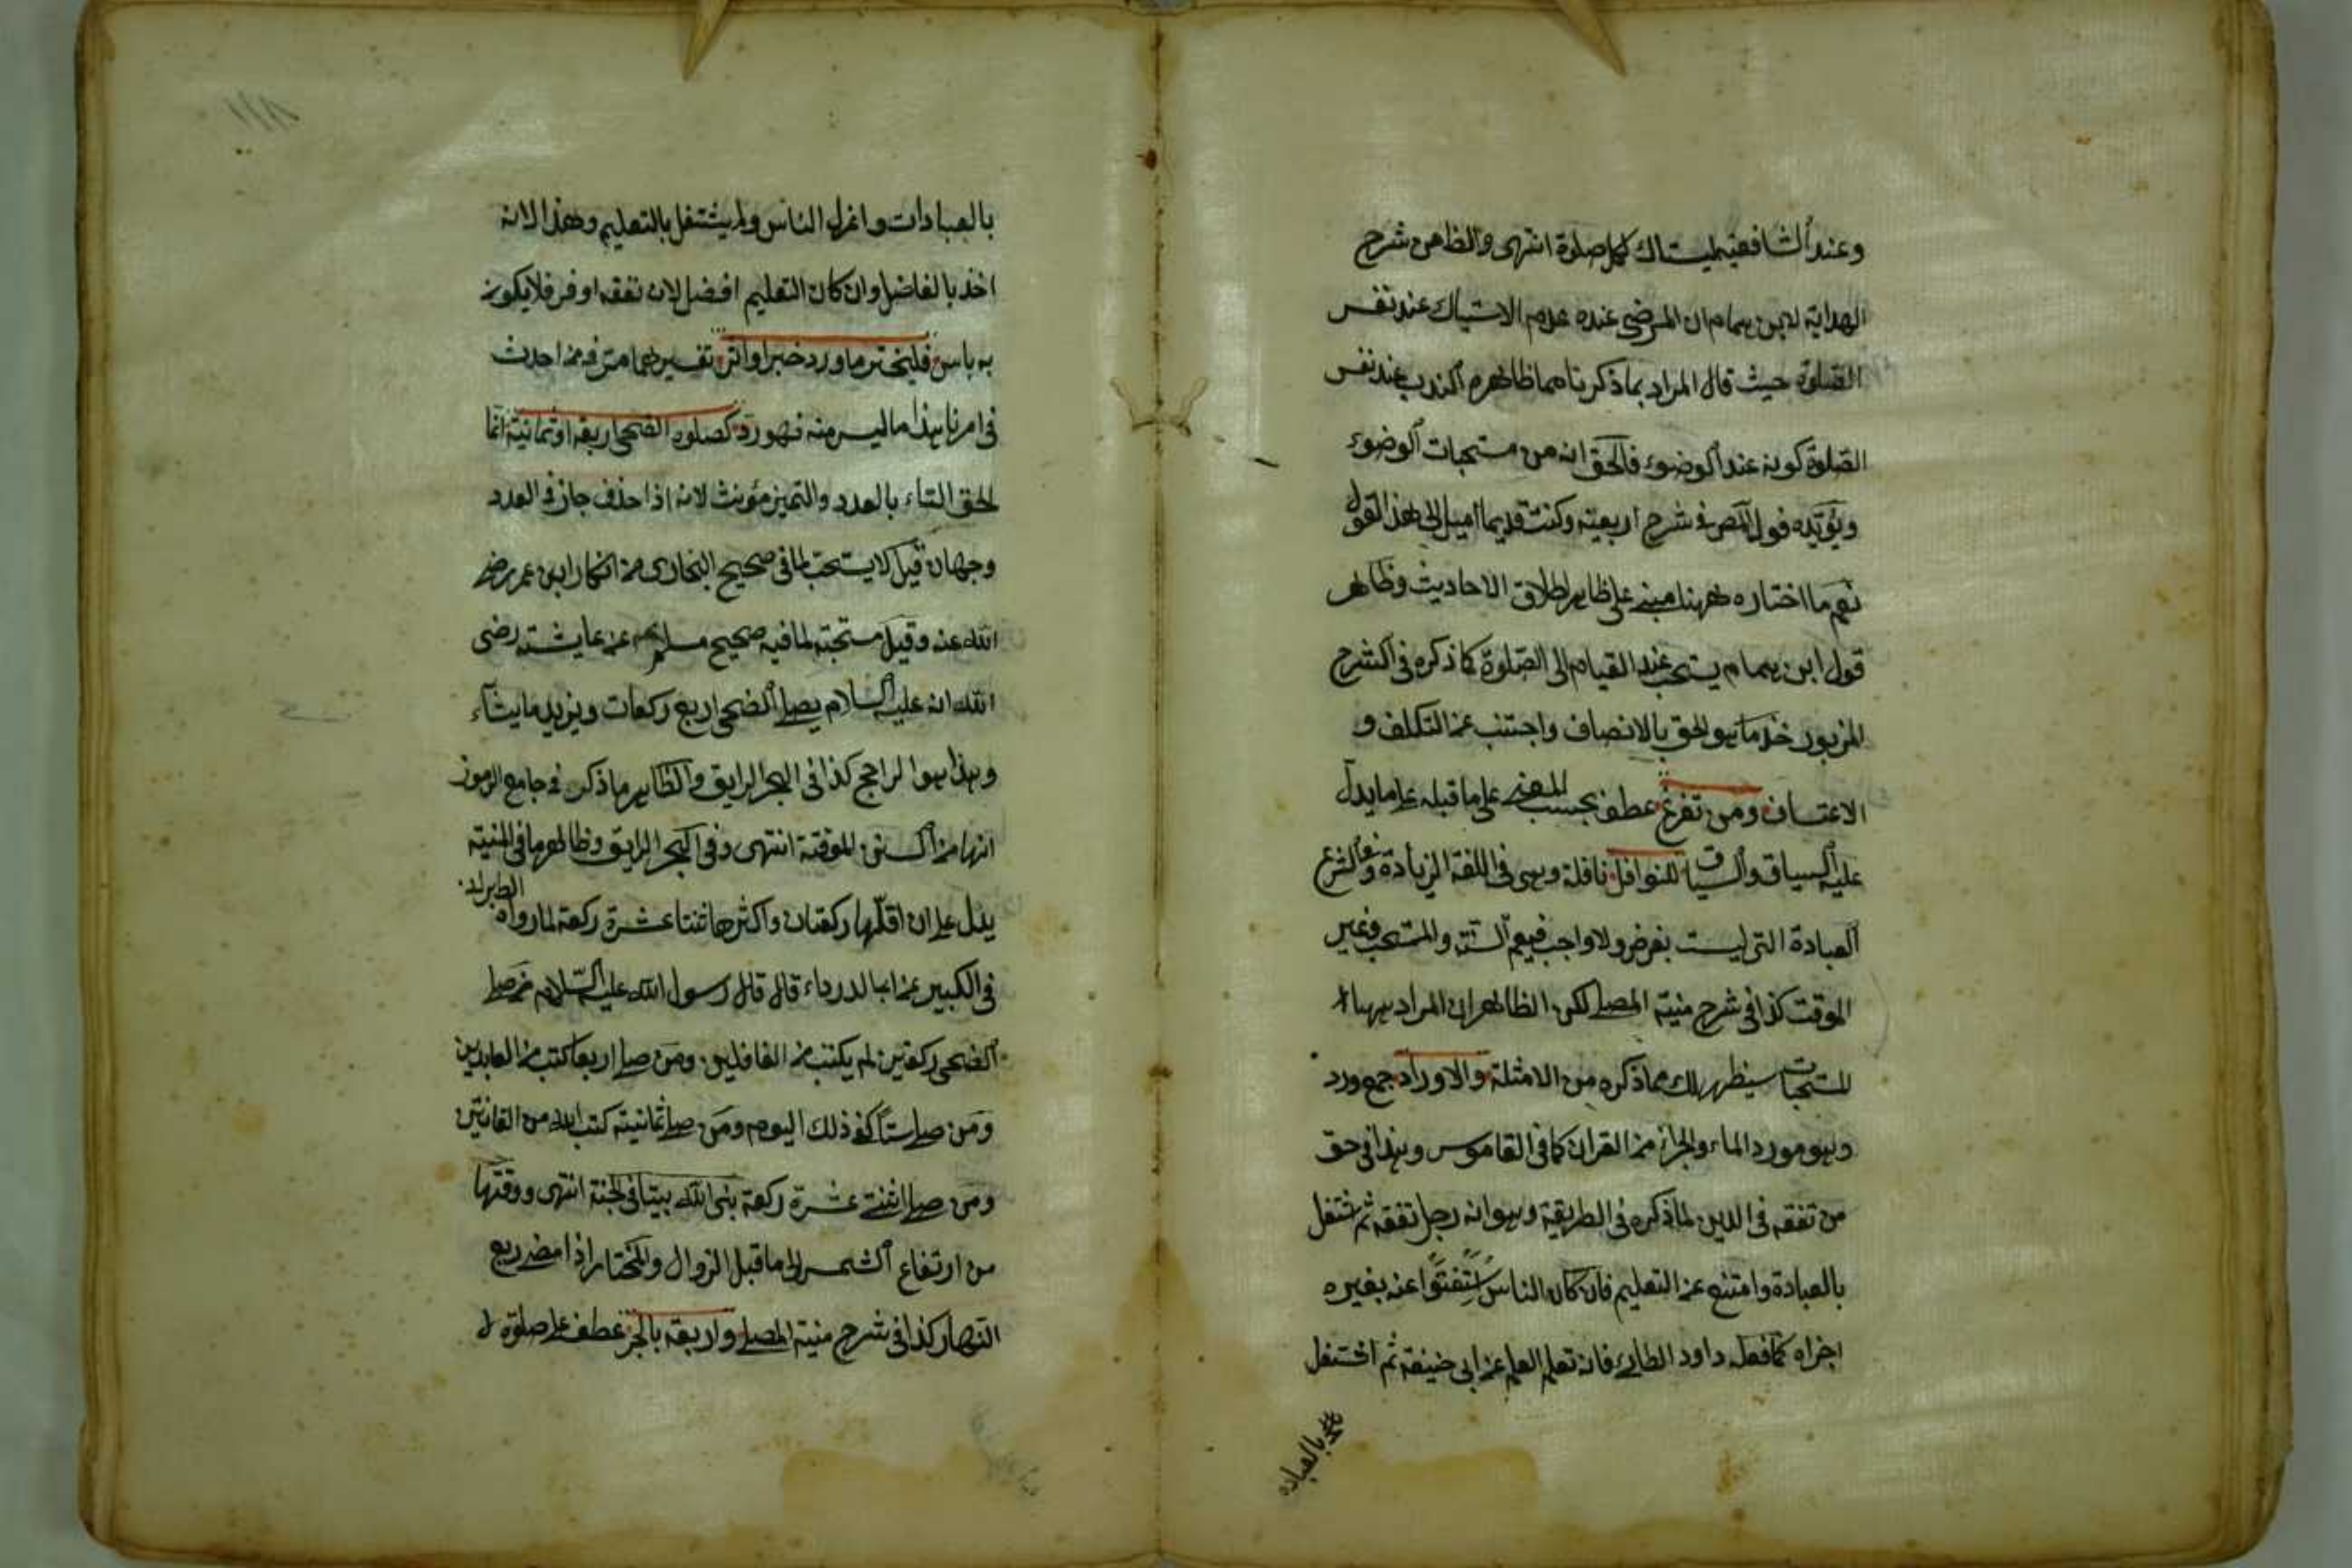 وعند الشافعية يستاك لكل صلوة انتهى والظاهر من شرح
الهداية لابن همام ان المرضى عنده عدم الاستياك عند نفس
الصلوة حيث قال المراد بما ذكرنا مما ظاهره الندب عند نفس
الصلوة كونه عند الوضوء فالحق انه من مستحبات الوضوء
ويؤيده قول المص فى شرح اربعينه وكنت قديما اميل الى هذا القول
نعم ما اختاره ههنا مبنى على ظاهر اطلاق الاحاديث وظاهر
قول ابن همام يستحب عند القيام الى الصلوة كما ذكره فى الشرح
المزبور خذ ما هو الحق بالانصاف واجتنب عن التكلف و
الاعتساف ومن تفرغ عطف بحسب المعنى على ما قبله على ما يدل
عليه السياق والسباق للنوافل نافلة وهى فى اللغة الزيادة وفى الشرع
العبادة التى ليست بفرض ولا واجب فيعم السنة والمستحب وغير
الموقت كذا فى شرح منية المصلى لكن الظاهر ان المراد ههنا
المستحبات سيظهر لك مما ذكره من الامثلة والاوراد جمع ورد
وهو مورد الماء والجزء من القران كما فى القاموس وهذا فى حق
من تفقه فى الدين لما ذكره فى الطريقة وهو انه رجل تفقه ثم اشتغل
بالعبادة وامتنع عن التعليم فان كان الناس استفتوا عنه بغيره
اجزاه كما فعل داود الطائى فانه تعلم العلم عن ابى حنيفة ثم اشتغل
بالعباده
بالعبادات واعزل الناس ولم يشتغل بالتعليم وهذا لانه
اخذ بالفاضل وان كان التعليم افضل لان نفعه اوفر فلا يكون
به باس فليختر ما ورد خبرا واثر تفسيرهما مر فى من احدث
فى امرنا هذا ما ليس منه فهو رد كصلوة الضحى اربعة او ثمانية انما
لحق التاء بالعدد والتميز مؤنث لانه اذا حذف جاز فى العدد
وجهان قيل لا يستحب لما فى صحيح البخارى من انكار ابن عمر رضى
الله عنه وقيل مستحبة لما فيه صحيح مسلم عن عايشة رضى
الله انه عليه السلام يصلى الضحى اربع ركعات ويزيد ما يشاء
وهذا هو الراجح كذا فى البحر الرايق والظاهر ما ذكر فى جامع الرموز
انها من السنن الموقتة انتهى وفى البحر الرايق وظاهر ما فى المنية
يدل على ان اقلها ركعتان واكثرها ثنتا عشرة ركعة لما رواه الطبرانى
فى الكبير عن ابا الدرداء قال قال رسول الله عليه السلام من صلى
الضحى ركعتين لم يكتب من الغافلين ومن صلى اربعا كتب من العابدين
ومن صلى ستا كفى ذلك اليوم ومن صلى ثمانية كتب الله من القانتين
ومن صلى اثنتى عشرة ركعة بنى الله بيتا فى الجنة انتهى ووقتها
من ارتفاع الشمس الى ما قبل الزوال والمختار اذا مضى ربع
النهار كذا فى شرح منية المصلى واربعة بالجر عطف على صلوة